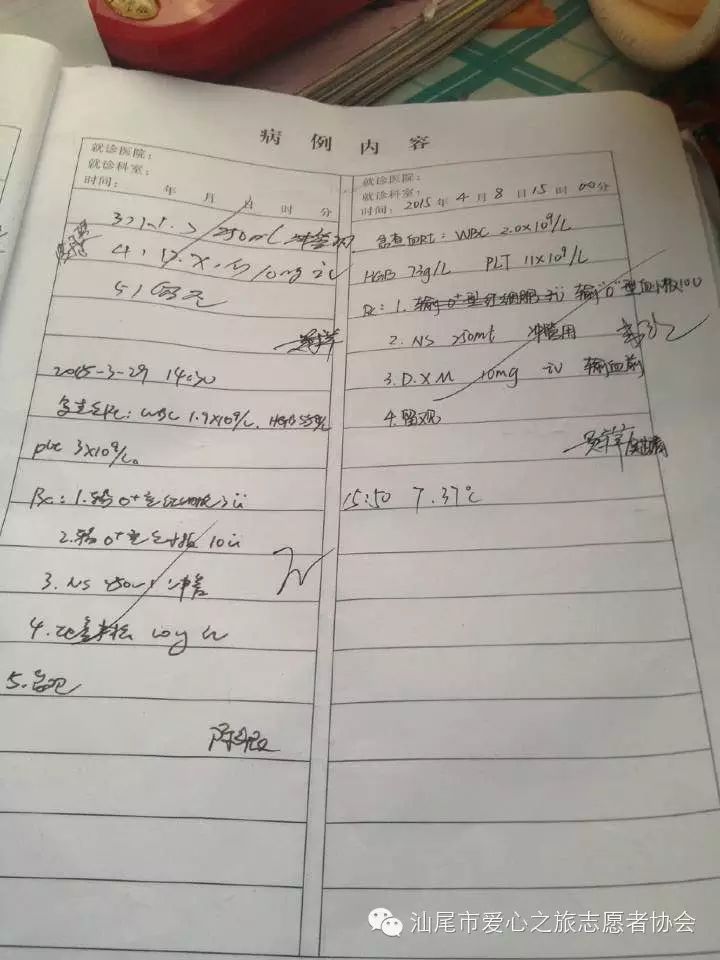 病例内容
就诊医院:
就诊科室:
时间: 年 月 日 时 分
3、N.S 250ml 冲管用
4、D.X.M 10mg iv
5、留观
2015-3-29 14:30
急查血Rt: WBC 1.9×10^9/L. HGB
plt 3×10^9/L。
Rx: 1.输O+型红细胞3u
2.输O+型血小板10u
3. NS 250ml 冲管
4.地塞米松 10mg iv
5.留观
就诊医院:
就诊科室:
时间: 2015年4月8日15时00分
急查血RT: WBC 2.0×10^9/L
HGB 73g/L PLT 11×10^9/L
Rx: 1. 输"O"型血小板10u
2. NS 250ml 冲管用
3. D.X.M 10mg iv 输血前
4.留观
15:50 T.37℃
汕尾市爱心之旅志愿者协会